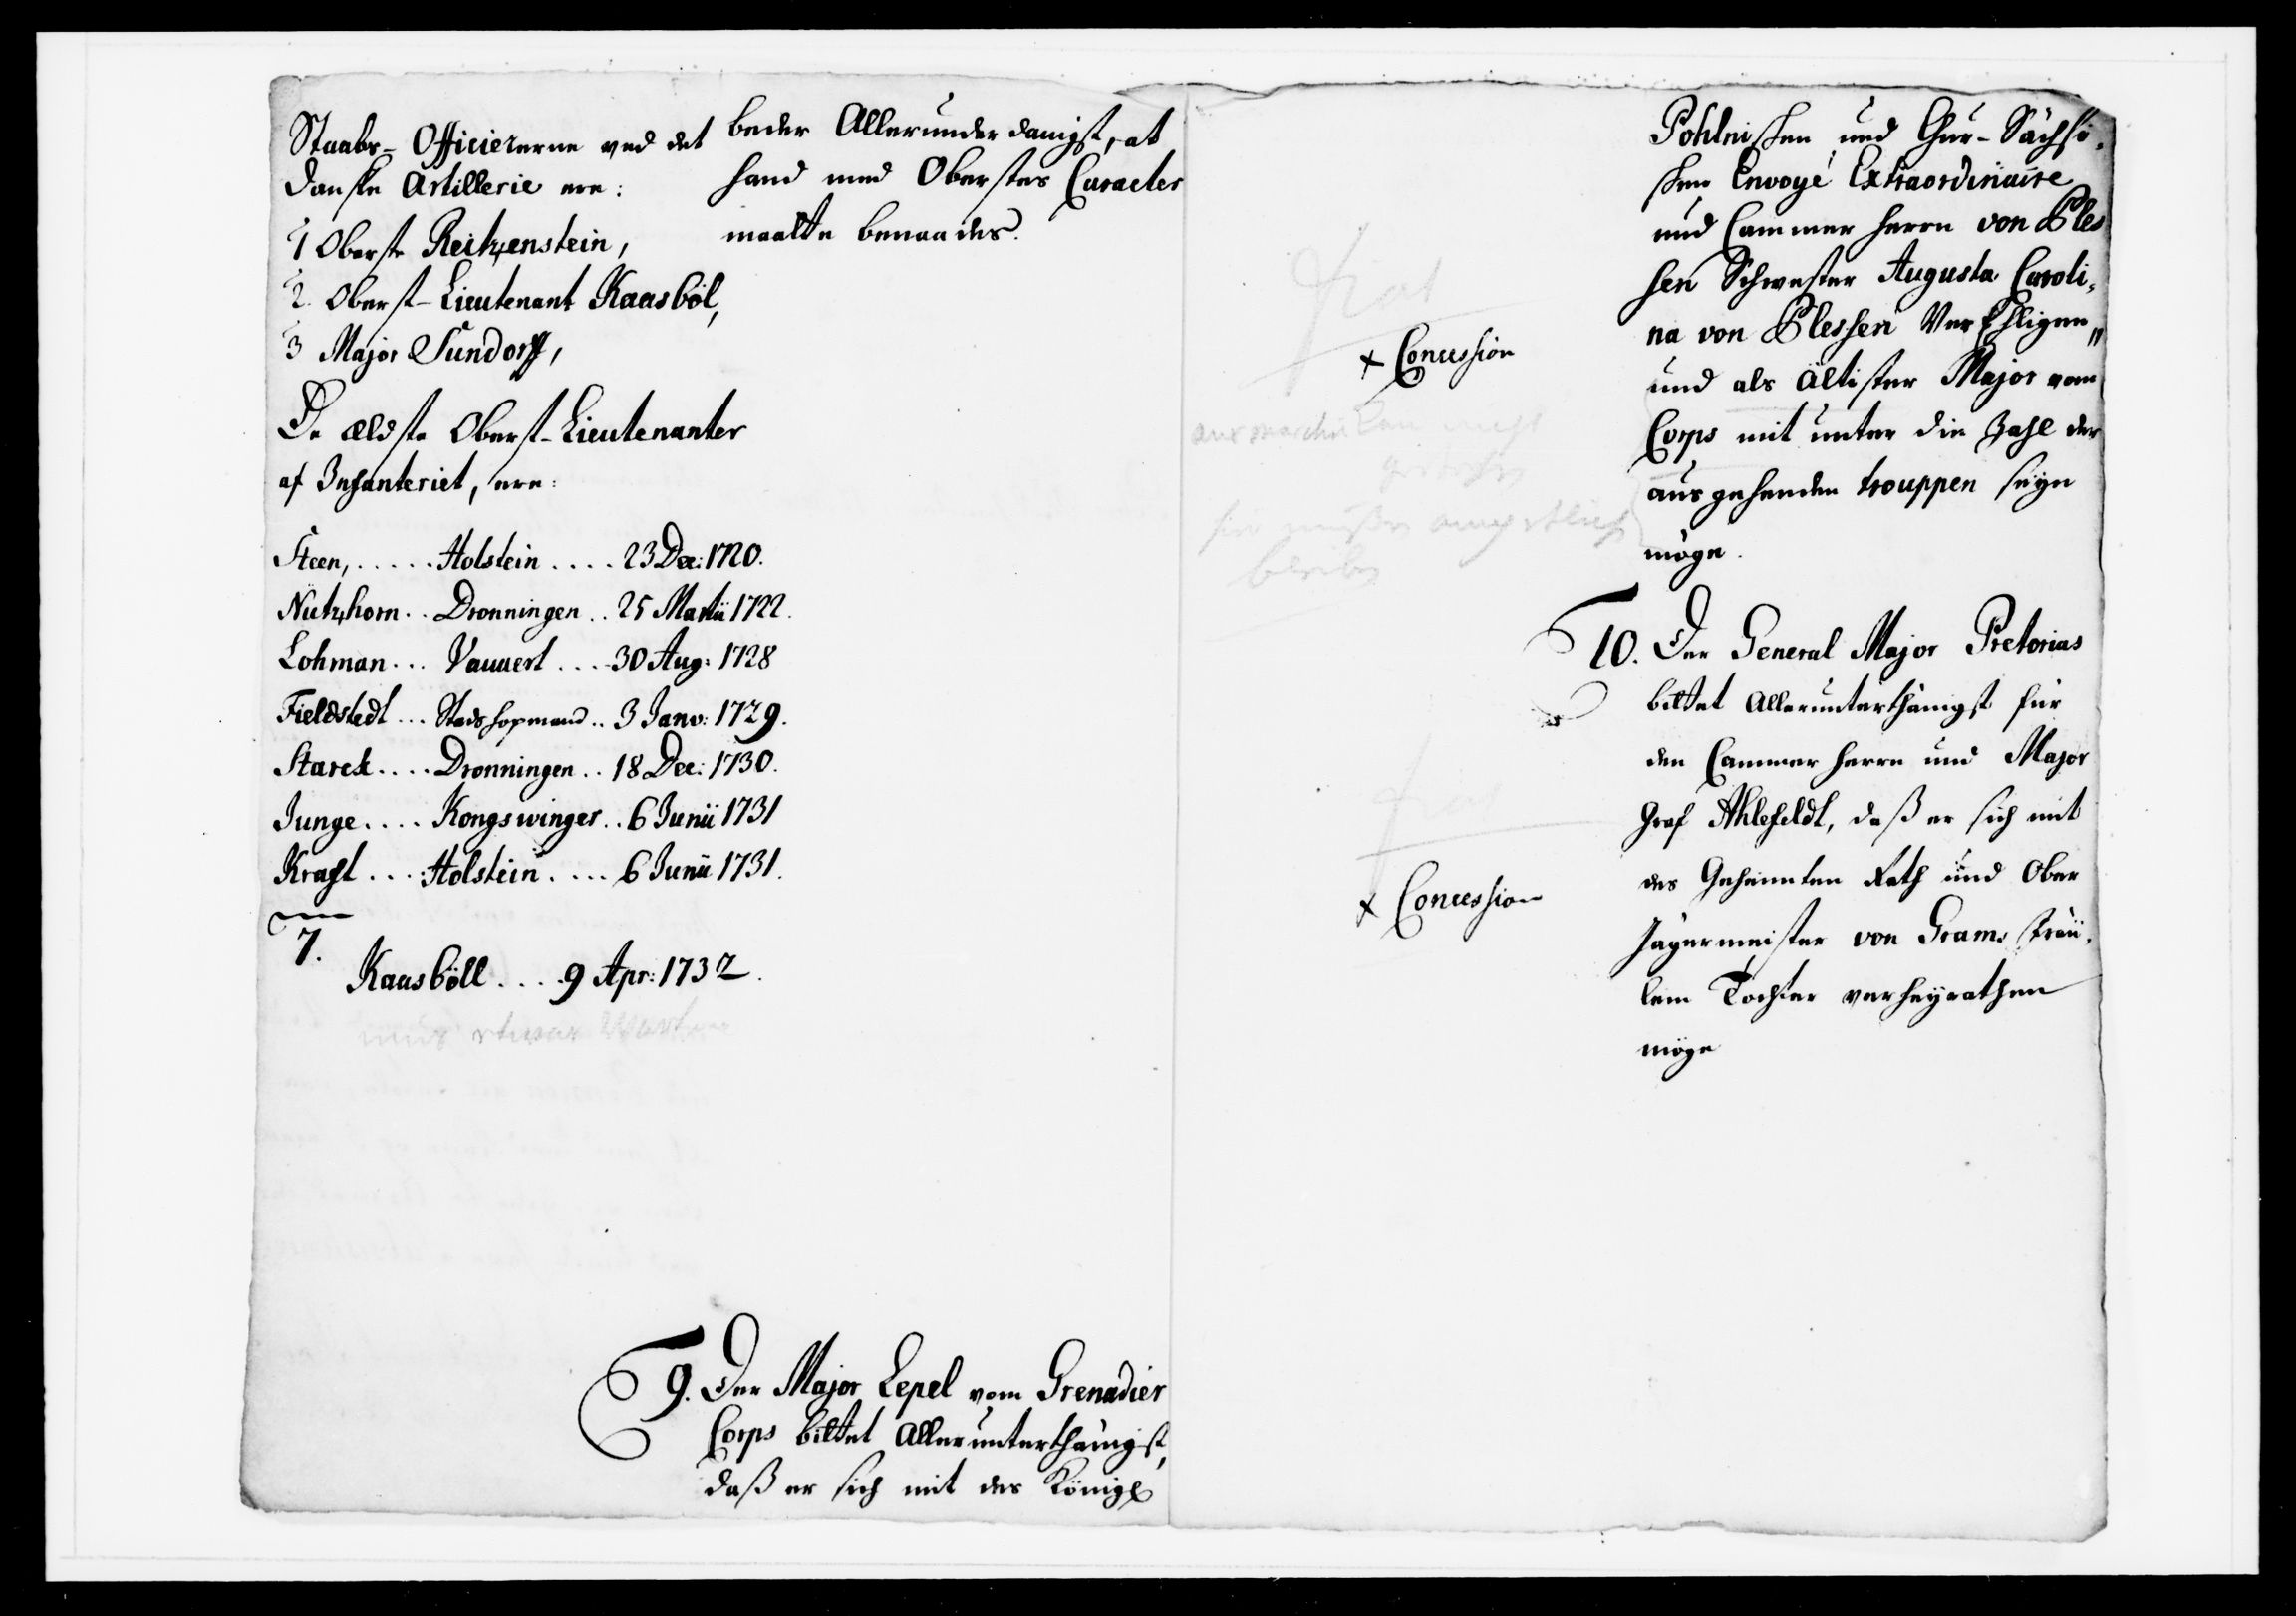 Staabs-Officiererne ved det
Danske Artillerie ere:
1 Oberste Reitzenstein,
2. Oberst-Lieutenant Kaasböl,
3 Major Sundorff,
De ældste Oberst-Lieutenanter
af Infanteriet, ere:
Steen, ..... Holstein .... 23 Dec: 1720.
Nutzhorn .. Dronningen .. 25 Martii 1722.
Lohman ... Vauuert .... 30 Aug: 1728
Fieldstedt ... Stadshopmand .. 3 Janv: 1729.
Starck .... Dronningen .. 18 Dec: 1730.
Junge .... Kongswinger .. 6 Junii 1731
Kraft .... Holstein .... 6 Junii 1731.
7.
Kaasböll .... 9 Apr: 1732.
mus etwas Warten
beder Allerunderdanigst, at
hand med Oberstes Caracter
maatte benaades.
9. Der Major Lepel vom Grenadier
Corps bittet Allerunterthänigst,
daß er sich mit des Königl
Pohlnischen und Chur-Sächsi-
schen Envoyé Extraordinaire
und Cammerherrn von Ples
sen Schwester Augusta Caroli-
na von Plessen Verehligen,
und als ältister Major vom
Corps mit unter die Zahl der
ausgehenden trouppen seyn
möge.
fiat
x Concession
aus marchiren kan nicht
sie müssen
bleiben
10. Der General Major Pretorius
bittet Allerunterthänigst für
den Cammerherrn und Major
Graf Ahlefeldt, daß er sich mit
des Geheimten Rath und Ober
Jägermeister von Grams Fräu-
lein Tochter verheyrathen
möge
fiat
x Concession